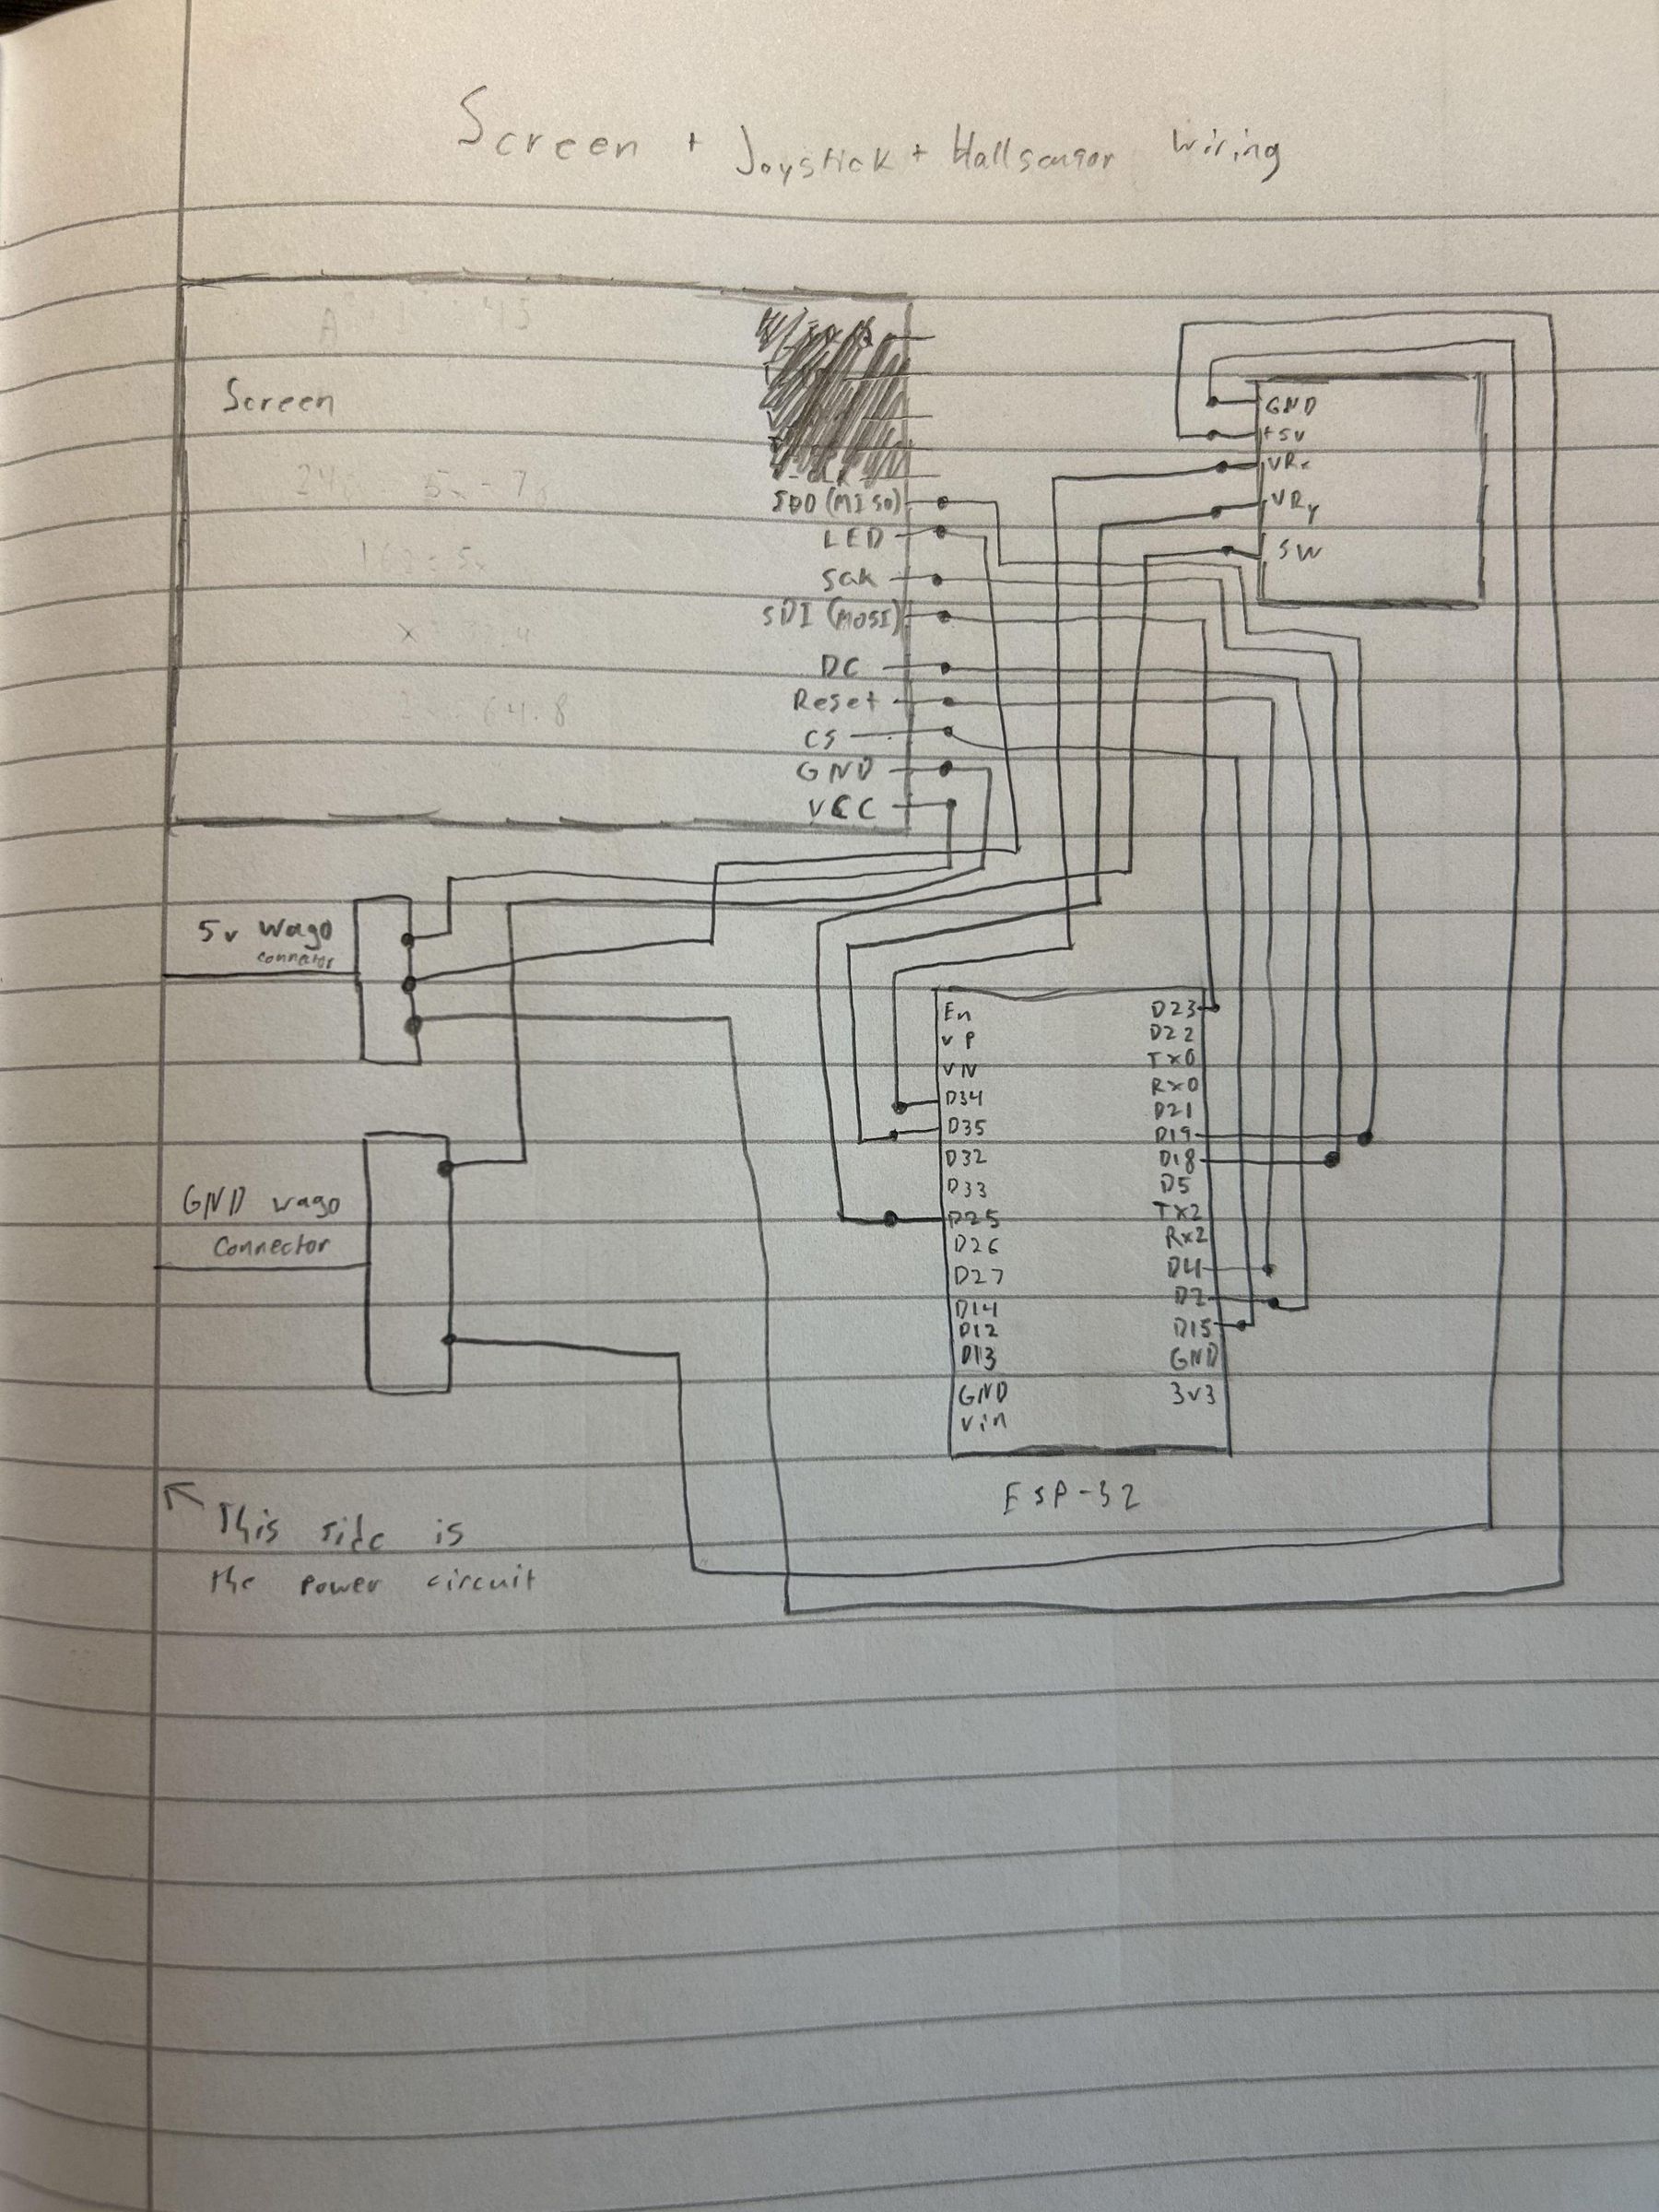 Screen + Joystick + Hallsensor Wiring
Screen
SDO (MISO)
LED
Sck
SDI (MOSI)
DC
Reset
CS
GND
VCC
GND
+5v
VRx
VRy
SW
5v Wago
connector
GND wago
Connector
En
VP
VN
D34
D35
D32
D33
D25
D26
D27
D14
D12
D13
GND
Vin
D23
D22
TX0
RX0
D21
D19
D18
D5
TX2
RX2
D4
D2
D15
GND
3v3
ESP-32
This side is
the power circuit